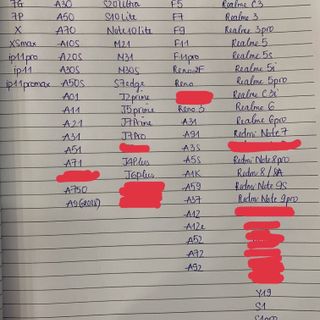 7G A30 S20Ultra F5 Realme C3
7P A50 S10 lite F7 Realme 3
X A70 Note10 lite F9 Realme 3pro
XSmax A10S M21 F11 Realme 5
ip11pro A20S M31 F11pro Realme 5s
ip11 A30S M30S Reno2F Realme 5i
ip11promax A50S S7edge Reno Realme 5pro
A01 J2prime Realme C3i
A11 J5prime Reno 3 Realme 6
A21 J7prime A31 Realme 6pro
A31 J7Pro A91 Redmi Note 7
A51 A3S
A71 J4Plus A5S Redmi Note 8pro
J6plus A1K Redmi 8/8A
A750 A59 Redmi Note 9S
A9(2018) A37 Redmi Note 9pro
A12
A12e
A52
A72
A92
Y19
S1
S1pro